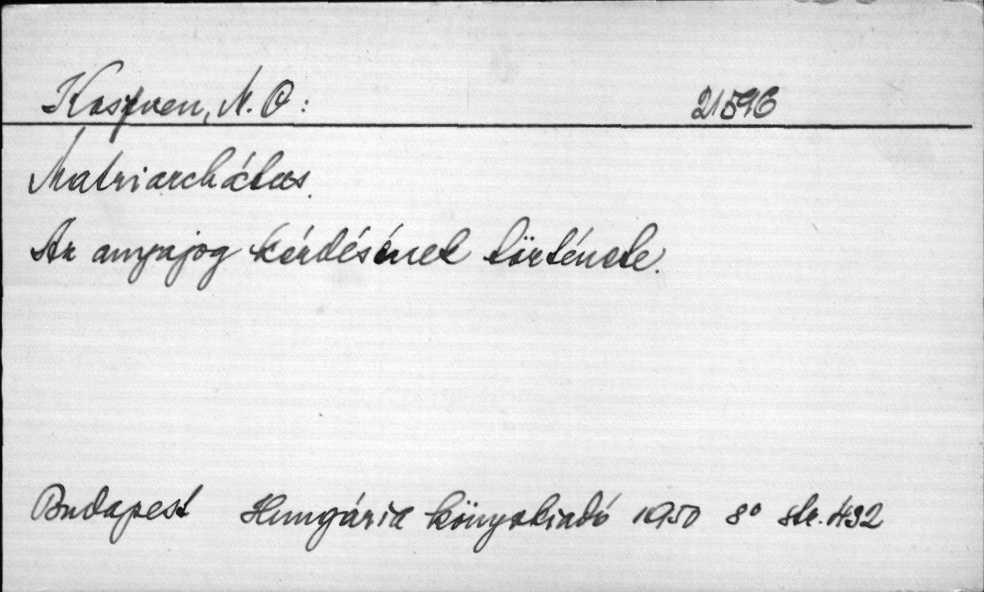 Koszven, M. O: 21596
Matriarchátus.
Az anyajog kérdésének története.
Budapest Hungária könyvkiadó 1950 8° str. 432